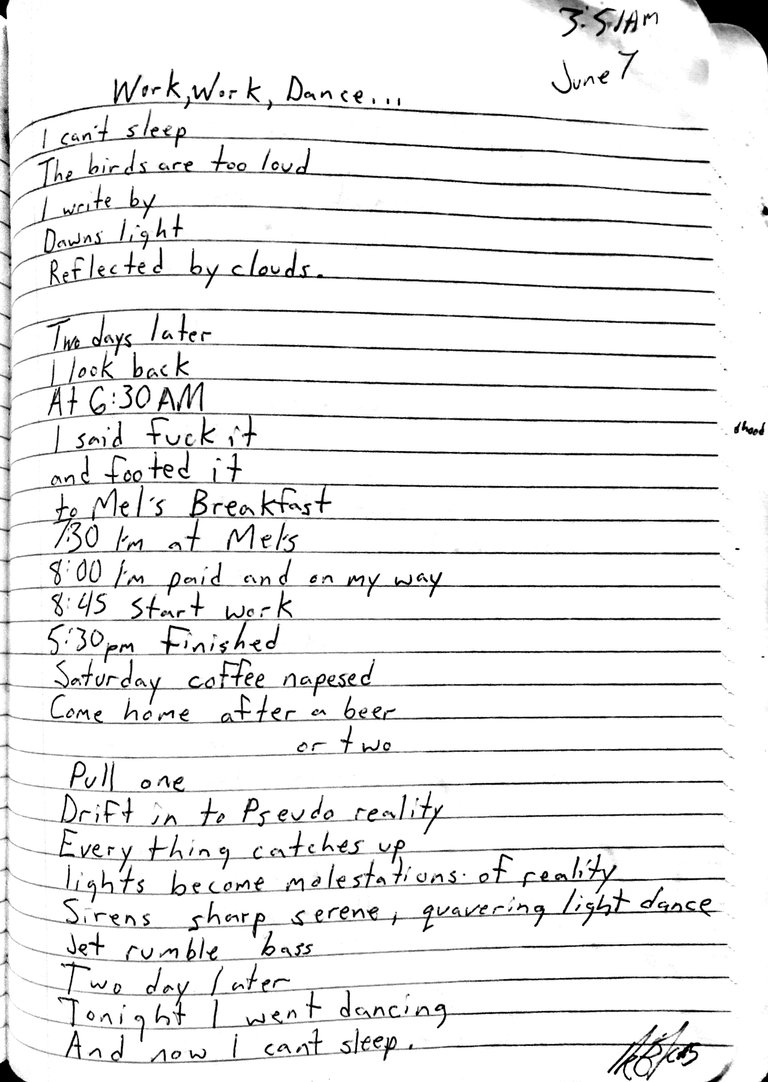 3:51AM
June 7
Work, Work, Dance...
I can't sleep
The birds are too loud
I write by
Dawns light
Reflected by clouds.
Two days later
I look back
At 6:30 AM
I said fuck it
and footed it
to Mel's Breakfast
7:30 I'm at Mel's
8:00 I'm paid and on my way
8:45 Start work
5:30pm Finished
Saturday coffee napesed
Come home after a beer
or two
Pull one
Drift in to Pseudo reality
Every thing catches up
lights become molestations of reality
Sirens sharp serene, quavering light dance
Jet rumble bass
Two day later
Tonight I went dancing
And now I cant sleep.